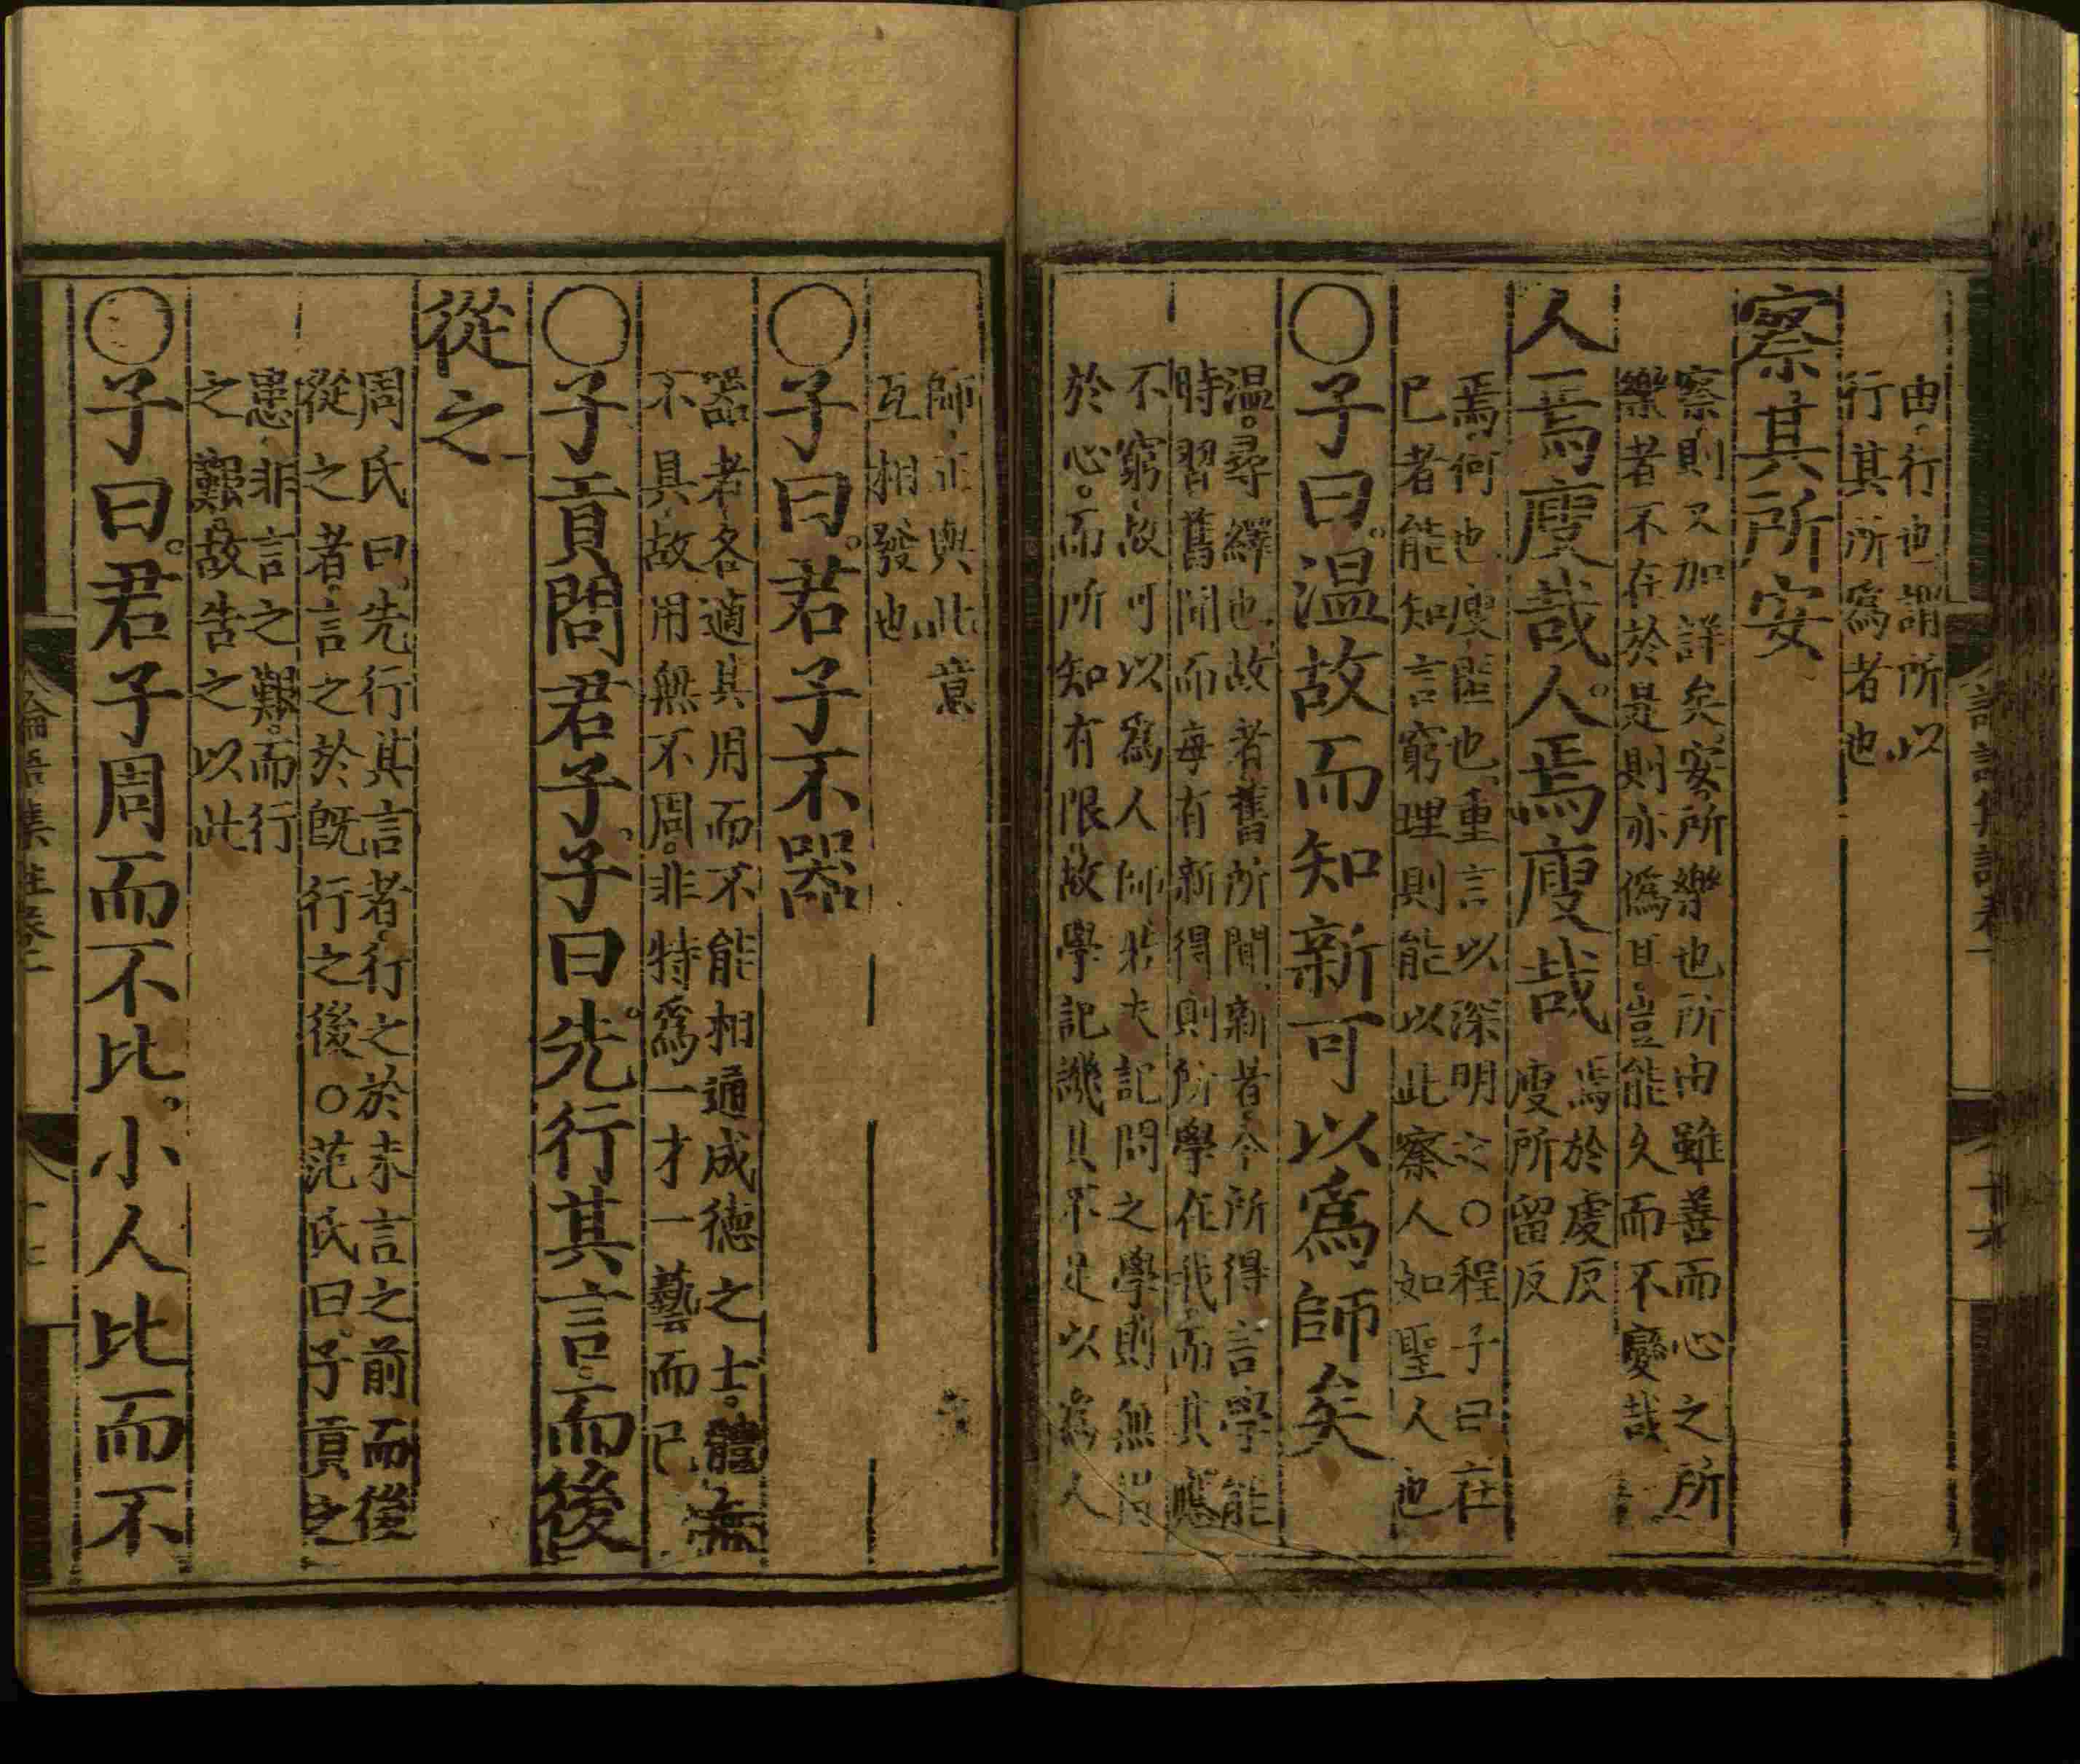 由。行也。謂所以
行其所爲者也
察其所安
察。則又加詳矣。安。所樂也。所由雖善。而心之所
樂者不在於是。則亦僞耳。豈能久而不變哉
人焉廋哉。人焉廋哉
焉於虔反
廋所留反
焉。何也。廋。匿也。重言以深明之○程子曰在
己者能知言窮理則能以此察人如聖人也
○子曰。温故而知新可以爲師矣
温。尋繹也。故者。舊所聞。新者。今所得。言學能
時習舊聞而每有新得則所學在我而其應
不窮。故可以爲人師若夫記問之學則無得
於心。而所知有限。故學記譏其不足以爲人
師。正與此意
互相發也
○子曰。君子不器
器者。各適其用而不能相通成德之士。體無
不具。故用無不周。非特爲一才一藝而已
○子貢問君子。子曰。先行其言。而後
從之
周氏曰。先行其言者。行之於未言之前而後
從之者。言之於旣行之後○范氏曰。子貢之
患。非言之艱。而行
之艱。故告之以此
○子曰。君子周而不比。小人比而不
論語集註卷一